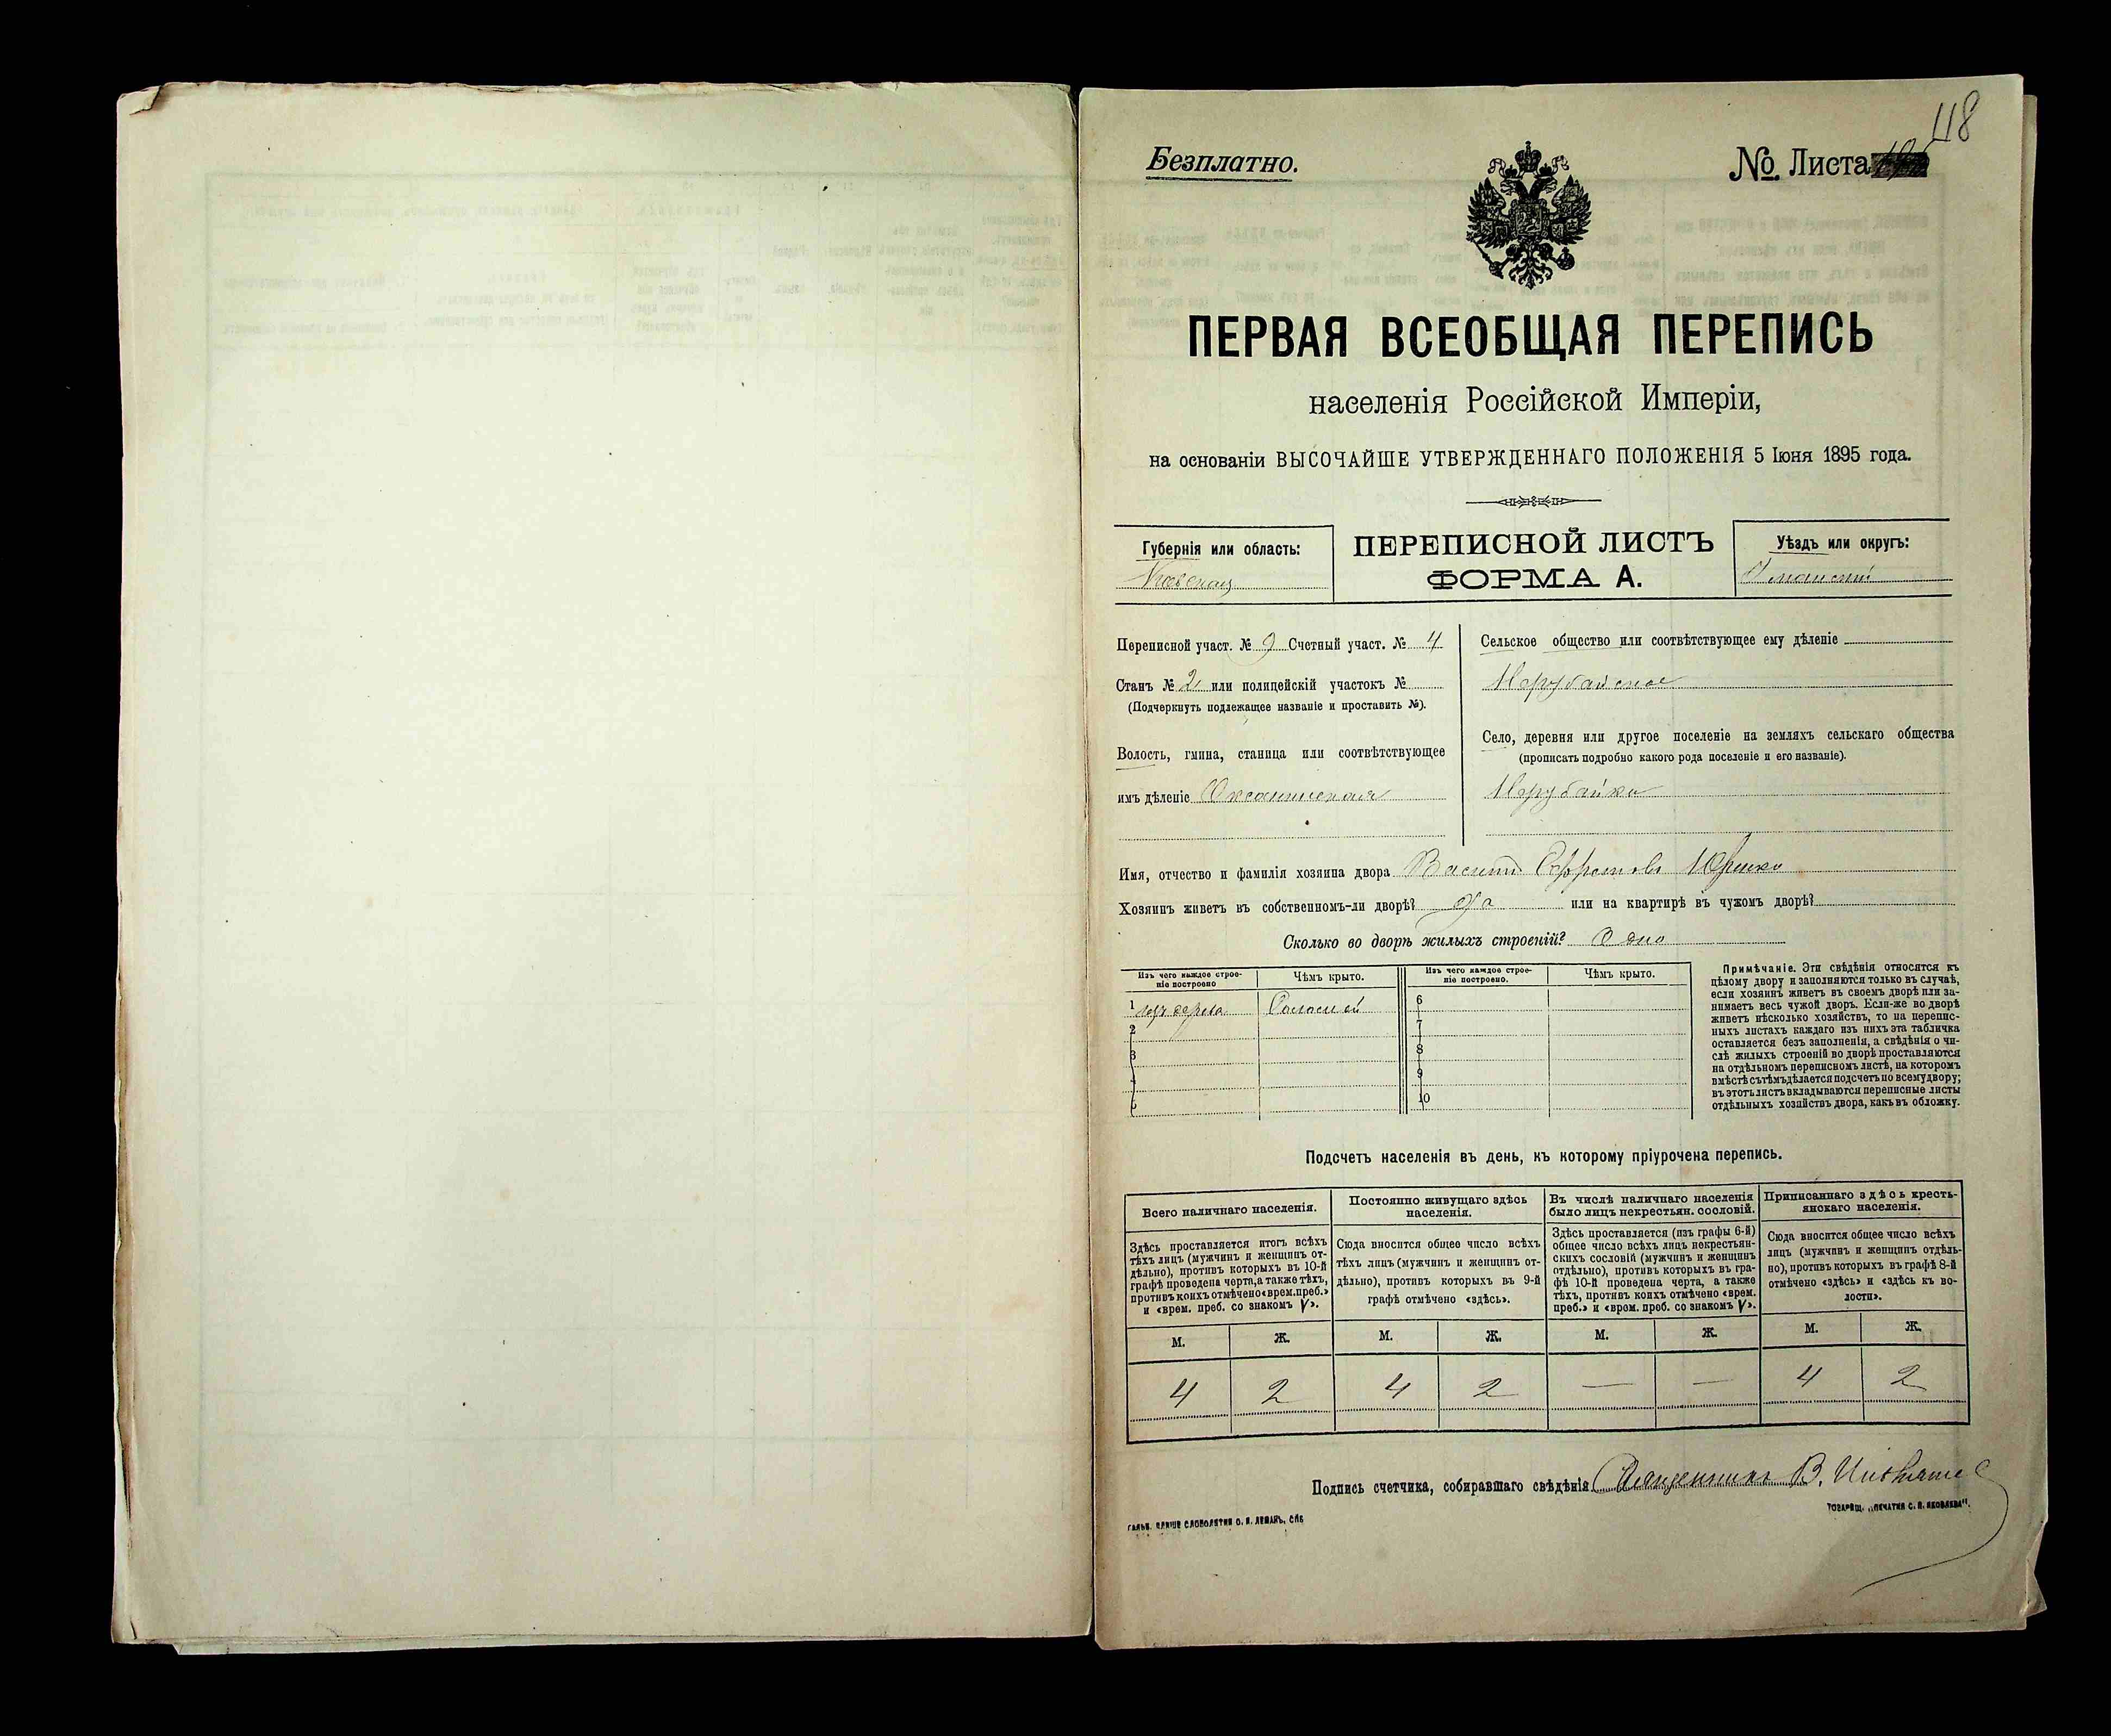 118
Безплатно.
№ Листа
ПЕРВАЯ ВСЕОБЩАЯ ПЕРЕПИСЬ
населенія Россійской Имперіи,
на основаніи ВЫСОЧАЙШЕ УТВЕРЖДЕННАГО ПОЛОЖЕНІЯ 5 Іюня 1895 года.
Губернія или область:
Кіевская
ПЕРЕПИСНОЙ ЛИСТЪ
ФОРМА А.
Уѣздъ или округъ:
Уманскій
Переписной участ. № 9 Счетный участ. № 4
Станъ № 2 или полицейскій участокъ №
(Подчеркнуть подлежащее названіе и проставить №).
Волость, гмина, станица или соотвѣтствующее
имъ дѣленіе Оксанинская
Сельское общество или соотвѣтствующее ему дѣленіе
Нерубайское
Село, деревня или другое поселеніе на земляхъ сельскаго общества
(прописать подробно какого рода поселеніе и его названіе).
Нерубайка
Имя, отчество и фамилія хозяина двора Василій
Хозяинъ живетъ въ собственномъ-ли дворѣ? Да или на квартирѣ въ чужомъ дворѣ?
Сколько во дворѣ жилыхъ строеній? Одно
Изъ чего каждое строе-
ніе построено
Чѣмъ крыто.
Изъ чего каждое строе-
ніе построено.
Чѣмъ крыто.
1 изъ дерева Соломой
2
3
5
6
7
8
9
10
Примѣчаніе. Эти свѣдѣнія относятся къ
цѣлому двору и заполняются только въ случаѣ,
если хозяинъ живетъ въ своемъ дворѣ или за-
нимаетъ весь чужой дворъ. Если-же во дворѣ
живетъ нѣсколько хозяйствъ, то на перепис-
ныхъ листахъ каждаго изъ нихъ эта табличка
оставляется безъ заполненія, а свѣдѣнія о чи-
слѣ жилыхъ строеній во дворѣ проставляются
на отдѣльномъ переписномъ листѣ, на которомъ
вмѣстѣ съ тѣмъ дѣлается подсчетъ по всему двору;
въ этотъ листъ вкладываются переписные листы
отдѣльныхъ хозяйствъ двора, какъ въ обложку.
Подсчетъ населенія въ день, къ которому пріурочена перепись.
Всего наличнаго населенія.
Здѣсь проставляется итогъ всѣхъ
тѣхъ лицъ (мужчинъ и женщинъ от-
дѣльно), противъ которыхъ въ 10-й
графѣ проведена черта, а также тѣхъ,
противъ коихъ отмѣчено «врем. преб.»
и «врем. преб. со знакомъ V».
Постоянно живущаго здѣсь
населенія.
Сюда вносится общее число всѣхъ
тѣхъ лицъ (мужчинъ и женщинъ от-
дѣльно), противъ которыхъ въ 9-й
графѣ отмѣчено «здѣсь».
Въ числѣ наличнаго населенія
было лицъ некрестьян. сословій.
Здѣсь проставляется (изъ графы 6-й)
общее число всѣхъ лицъ некрестьян-
скихъ сословій (мужчинъ и женщинъ
отдѣльно), противъ которыхъ въ гра-
фѣ 10-й проведена черта, а также
тѣхъ, противъ коихъ отмѣчено «врем.
преб.» и «врем. преб. со знакомъ V».
Приписаннаго здѣсь кресть-
янскаго населенія.
Сюда вносится общее число всѣхъ
лицъ (мужчинъ и женщинъ отдѣль-
но), противъ которыхъ въ графѣ 8-й
отмѣчено «здѣсь» и «здѣсь къ во-
лости».
М. Ж. М. Ж. М. Ж. М. Ж.
4 2 4 2 — — 4 2
Подпись счетчика, собиравшаго свѣдѣнія
ТОВАРИЩ. „ПЕЧАТНЯ С. П. ЯКОВЛЕВА".
ГАЛЬВ. КЛИШЕ СЛОВОЛИТНИ О. И. ЛЕМАНЪ, СПБ